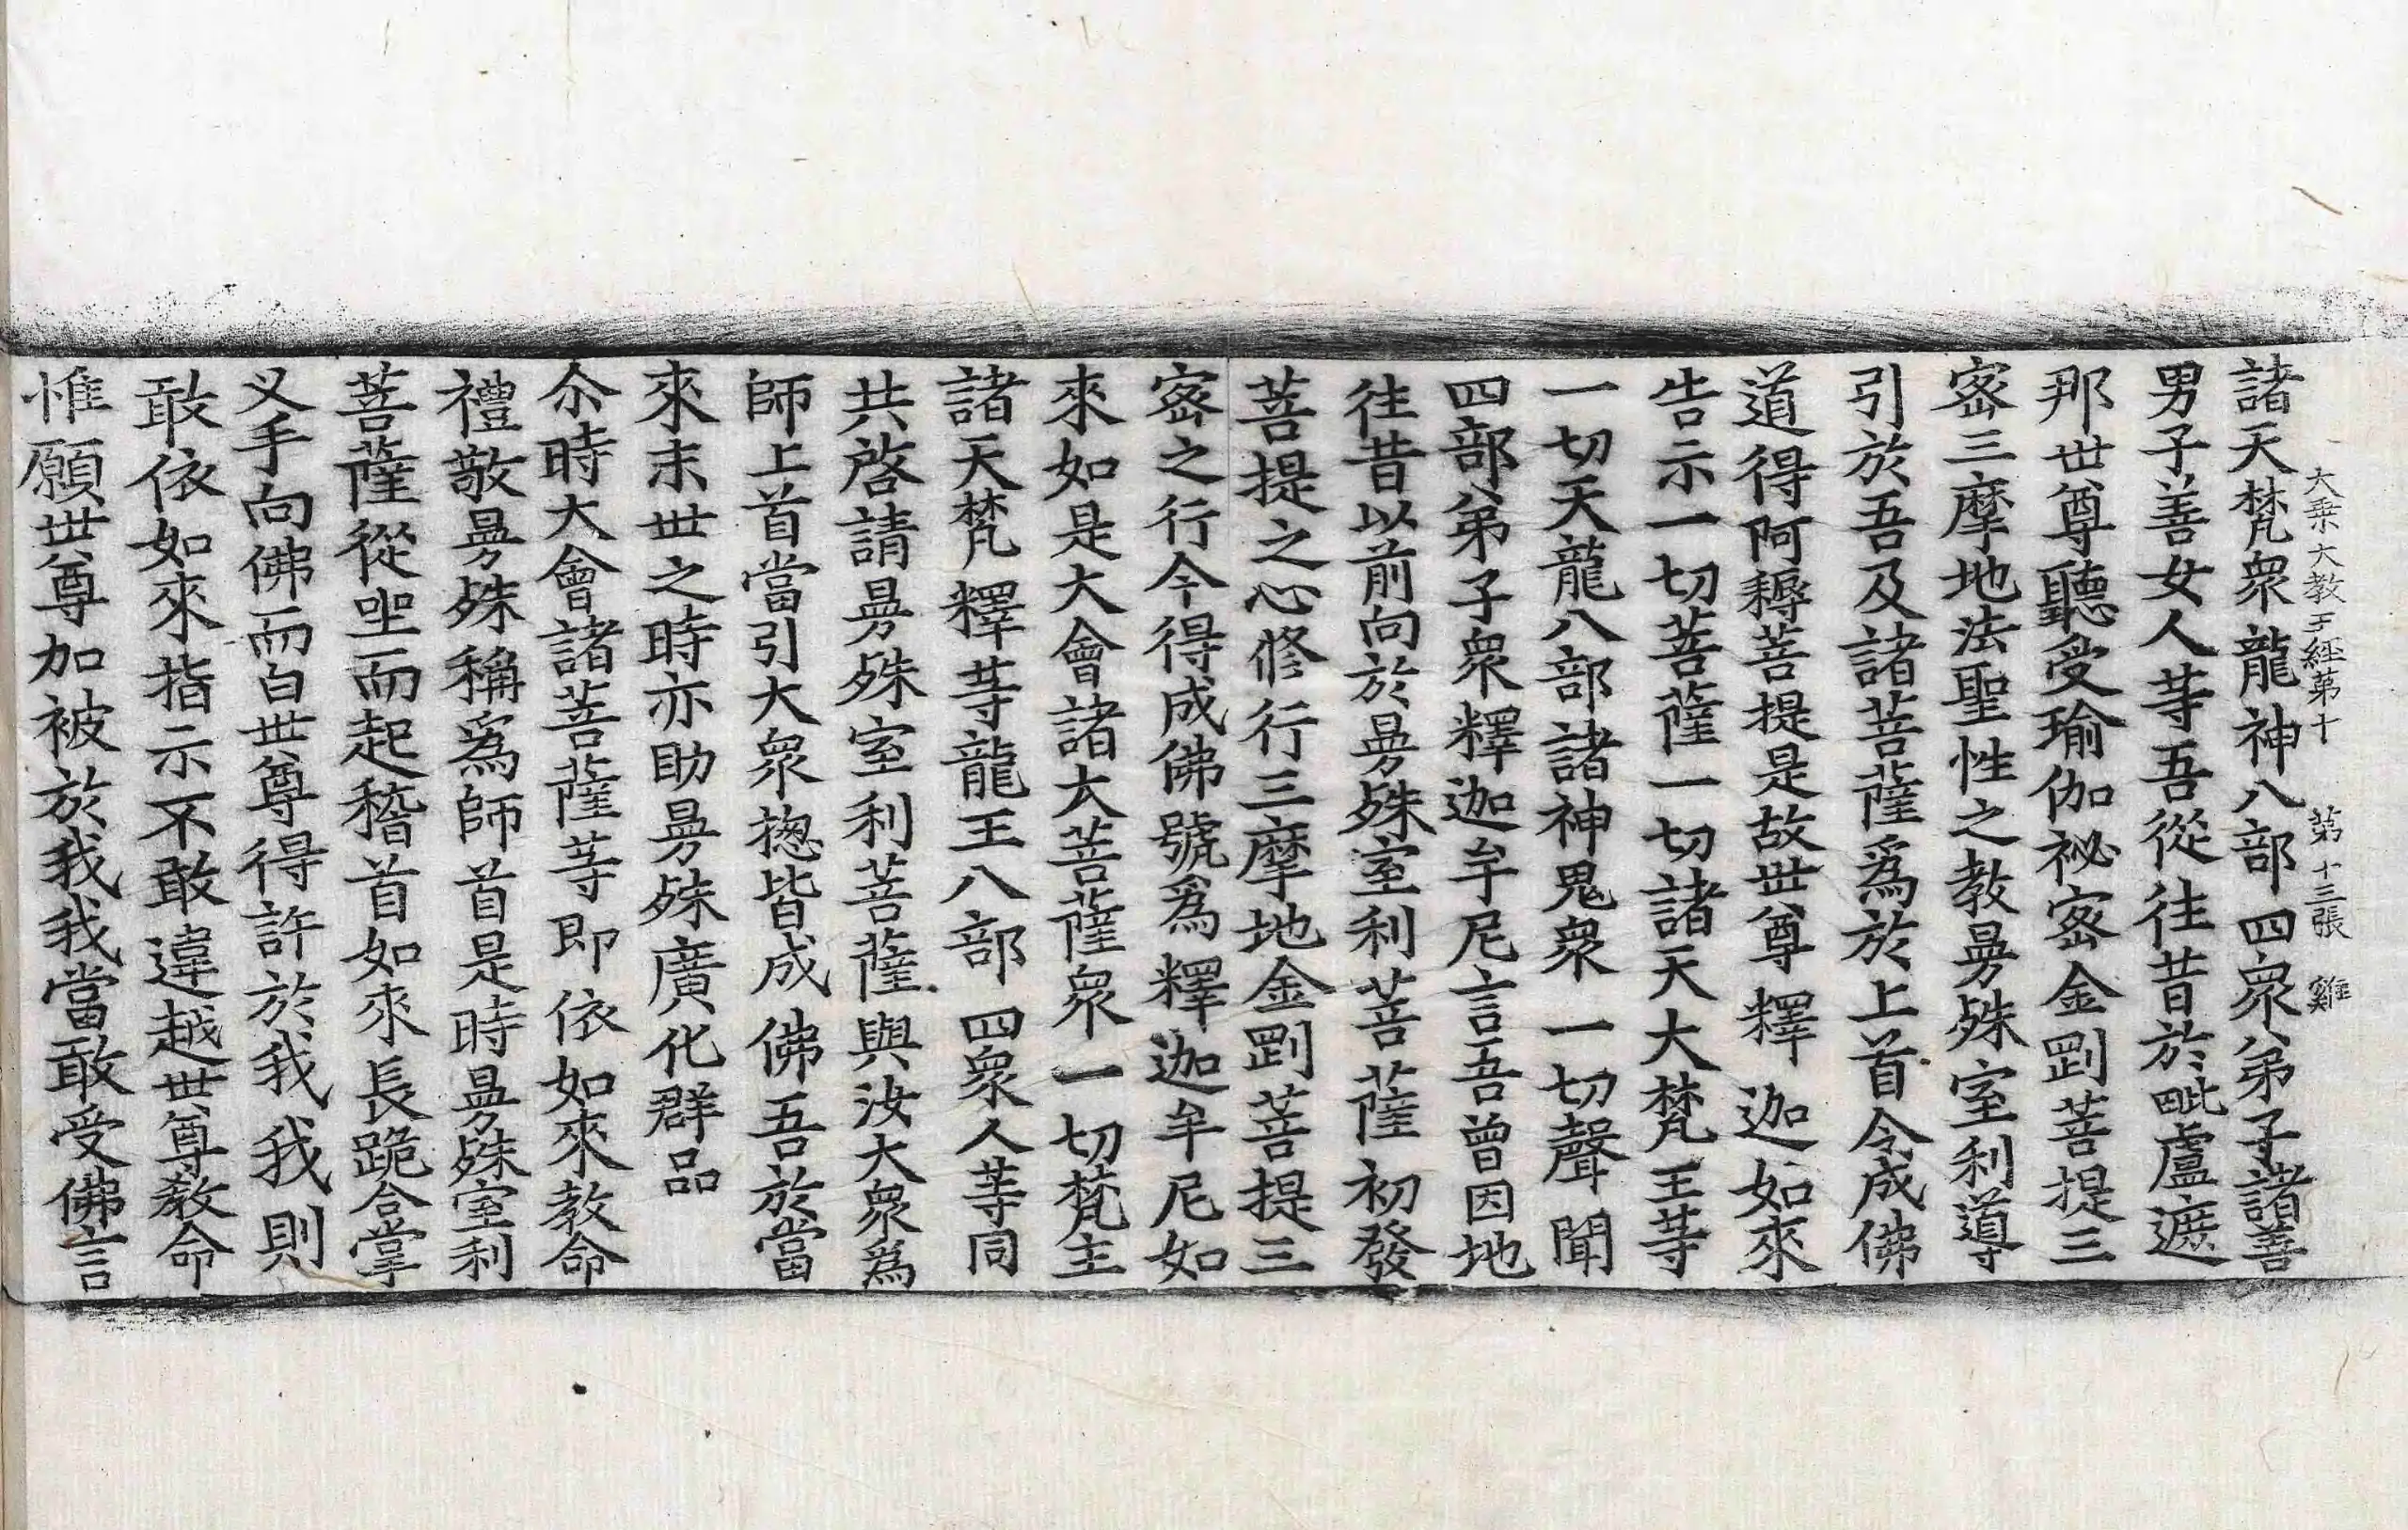 大乗大教王経第十　第十三張　雞
諸天梵衆龍神八部四衆弟子諸善
男子善女人等吾從往昔於毗盧遮
那世尊聽受瑜伽祕密金剛菩提三
密三摩地法聖性之教曼殊室利導
引於吾及諸菩薩爲於上首令成佛
道得阿耨菩提是故世尊釋迦如來
告示一切菩薩一切諸天大梵王等
一切天龍八部諸神鬼衆一切聲聞
四部弟子衆釋迦牟尼言吾曾因地
往昔以前向於曼殊室利菩薩初發
菩提之心修行三摩地金剛菩提三
密之行今得成佛號爲釋迦牟尼如
來如是大會諸大菩薩衆一切梵主
諸天梵釋等龍王八部四衆人等同
共啓請曼殊室利菩薩與汝大衆爲
師上首當引大衆揔皆成佛吾於當
來末世之時亦助曼殊廣化群品
尒時大會諸菩薩等即依如來教命
禮敬曼殊稱爲師首是時曼殊室利
菩薩從坐而起稽首如來長跪合掌
叉手向佛而白世尊得許於我我則
敢依如來指示不敢違越世尊教命
惟願世尊加被於我我當敢受佛言